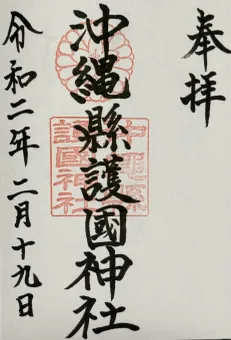 奉拝
沖縄縣護國神社
沖縄縣護國神社
令和二年二月十九日